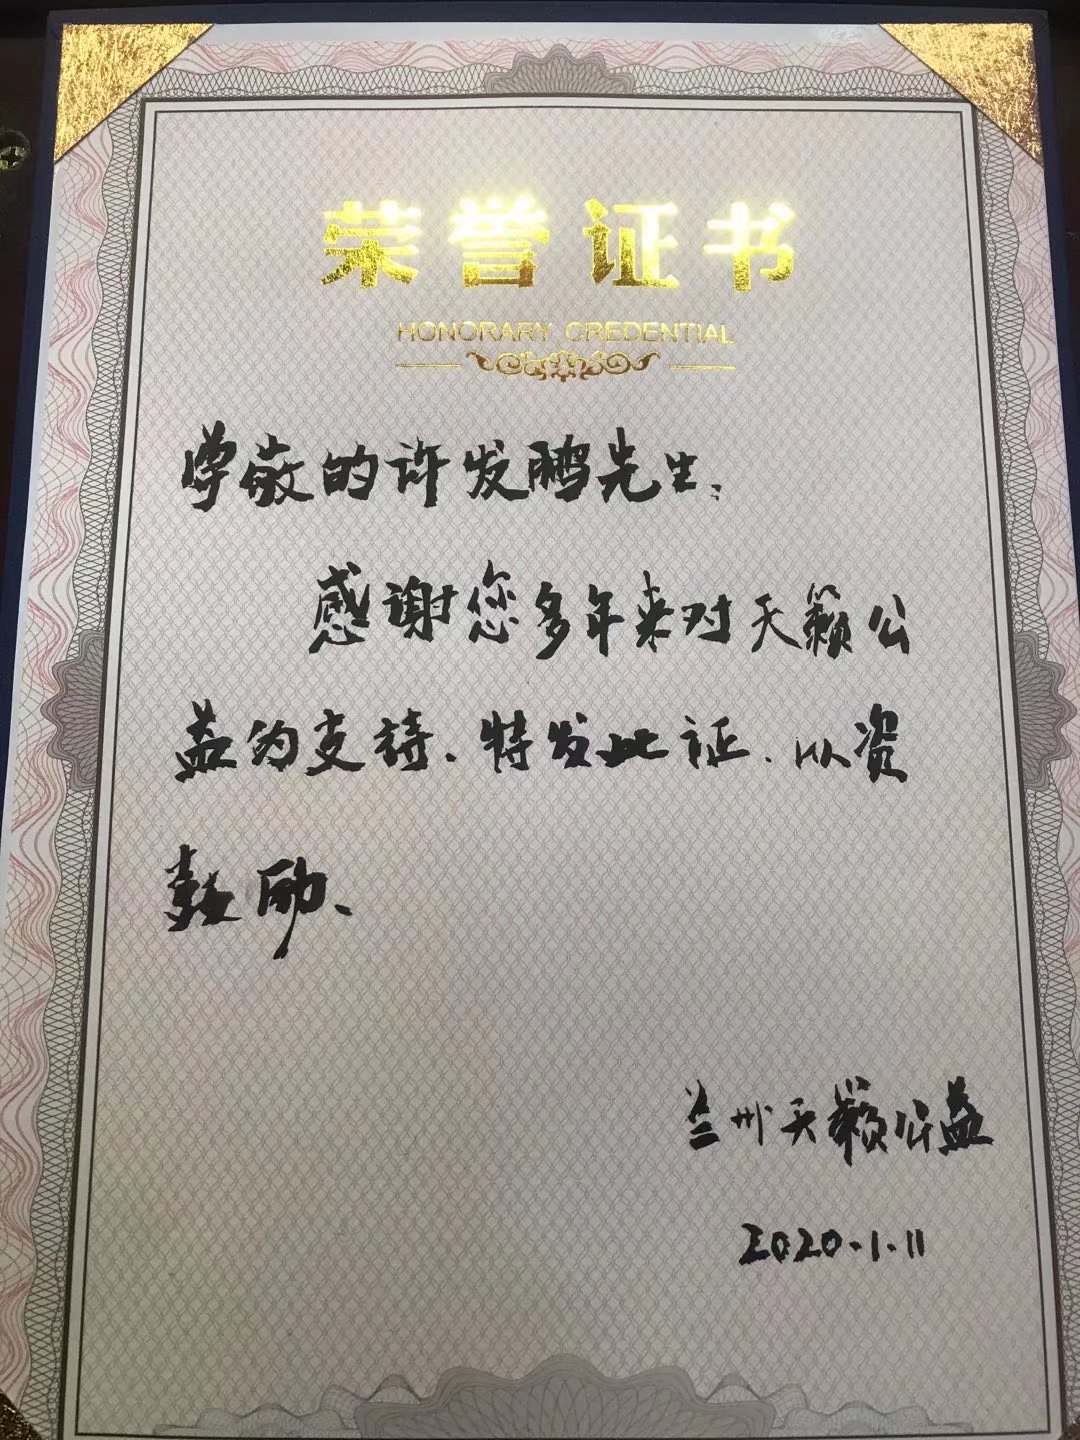 荣誉证书
HONORARY CREDENTIAL
尊敬的许发鹏先生:
感谢您多年来对天籁公
益的支持、特发此证、以资
鼓励、
兰州天籁公益
2020.1.11